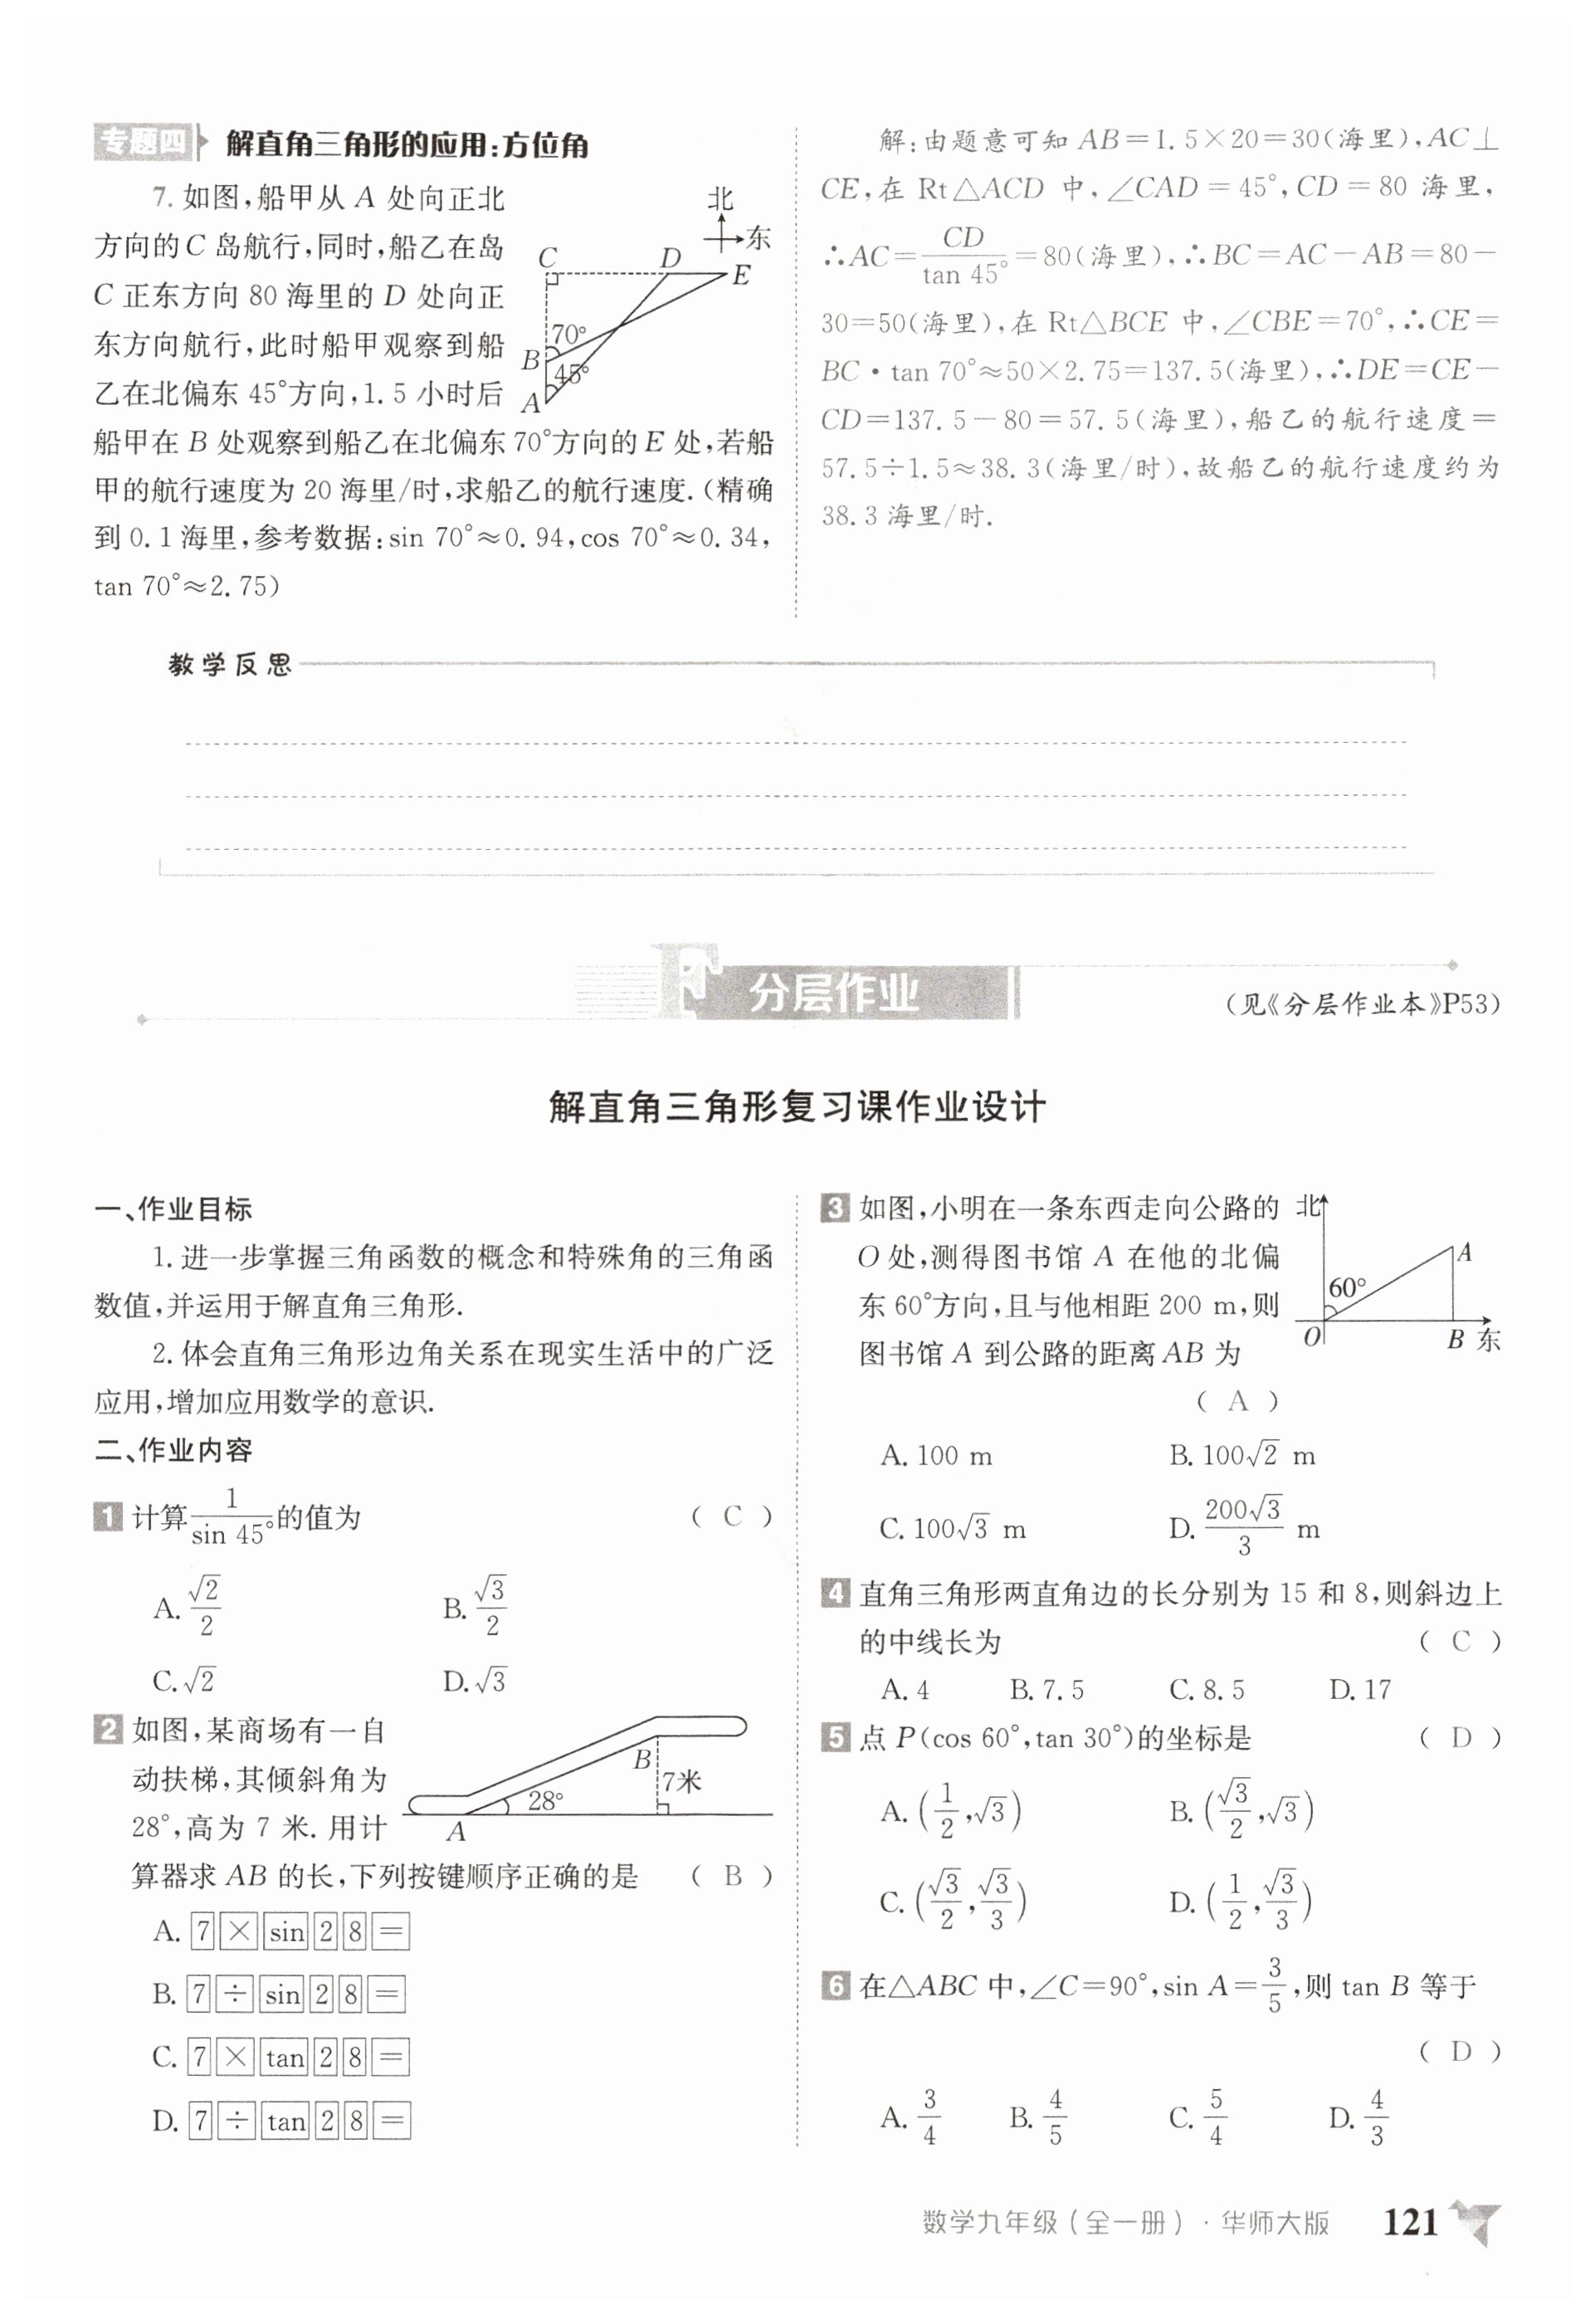 专题四 解直角三角形的应用:方位角
7. 如图,船甲从 A 处向正北
方向的 C 岛航行,同时,船乙在岛
C 正东方向 80 海里的 D 处向正
东方向航行,此时船甲观察到船
乙在北偏东 45°方向,1. 5 小时后
船甲在 B 处观察到船乙在北偏东 70°方向的 E 处,若船
甲的航行速度为 20 海里/时,求船乙的航行速度.(精确
到 0. 1 海里,参考数据:sin 70°≈0. 94,cos 70°≈0. 34,
tan 70°≈2. 75)
北
东
C D E
70°
B 45°
A
解:由题意可知 AB=1. 5×20=30(海里),AC⊥
CE,在 Rt△ACD 中,∠CAD=45°,CD=80 海里,
∴AC=CD/tan 45°=80(海里),∴BC=AC-AB=80-
30=50(海里),在 Rt△BCE 中,∠CBE=70°,∴CE=
BC·tan 70°≈50×2. 75=137. 5(海里),∴DE=CE-
CD=137. 5-80=57. 5(海里),船乙的航行速度=
57. 5÷1. 5≈38. 3(海里/时),故船乙的航行速度约为
38. 3 海里/时.
教学反思
F 分层作业
(见《分层作业本》P53)
解直角三角形复习课作业设计
一、作业目标
1. 进一步掌握三角函数的概念和特殊角的三角函
数值,并运用于解直角三角形.
2. 体会直角三角形边角关系在现实生活中的广泛
应用,增加应用数学的意识.
二、作业内容
1 计算1/sin 45°的值为 ( C )
A. √2/2 B. √3/2
C. √2 D. √3
2 如图,某商场有一自
动扶梯,其倾斜角为
28°,高为 7 米. 用计
算器求 AB 的长,下列按键顺序正确的是 ( B )
B
7米
28°
A
A. 7 × sin 2 8 =
B. 7 ÷ sin 2 8 =
C. 7 × tan 2 8 =
D. 7 ÷ tan 2 8 =
3 如图,小明在一条东西走向公路的
O 处,测得图书馆 A 在他的北偏
东 60°方向,且与他相距 200 m,则
图书馆 A 到公路的距离 AB 为
( A )
北
A
60°
O B 东
A. 100 m B. 100√2 m
C. 100√3 m D. 200√3/3 m
4 直角三角形两直角边的长分别为 15 和 8,则斜边上
的中线长为 ( C )
A. 4 B. 7. 5 C. 8. 5 D. 17
5 点 P(cos 60°,tan 30°)的坐标是 ( D )
A. (1/2,√3) B. (√3/2,√3)
C. (√3/2,√3/3) D. (1/2,√3/3)
6 在△ABC 中,∠C=90°,sin A=3/5,则 tan B 等于
( D )
A. 3/4 B. 4/5 C. 5/4 D. 4/3
数学九年级(全一册)·华师大版 121